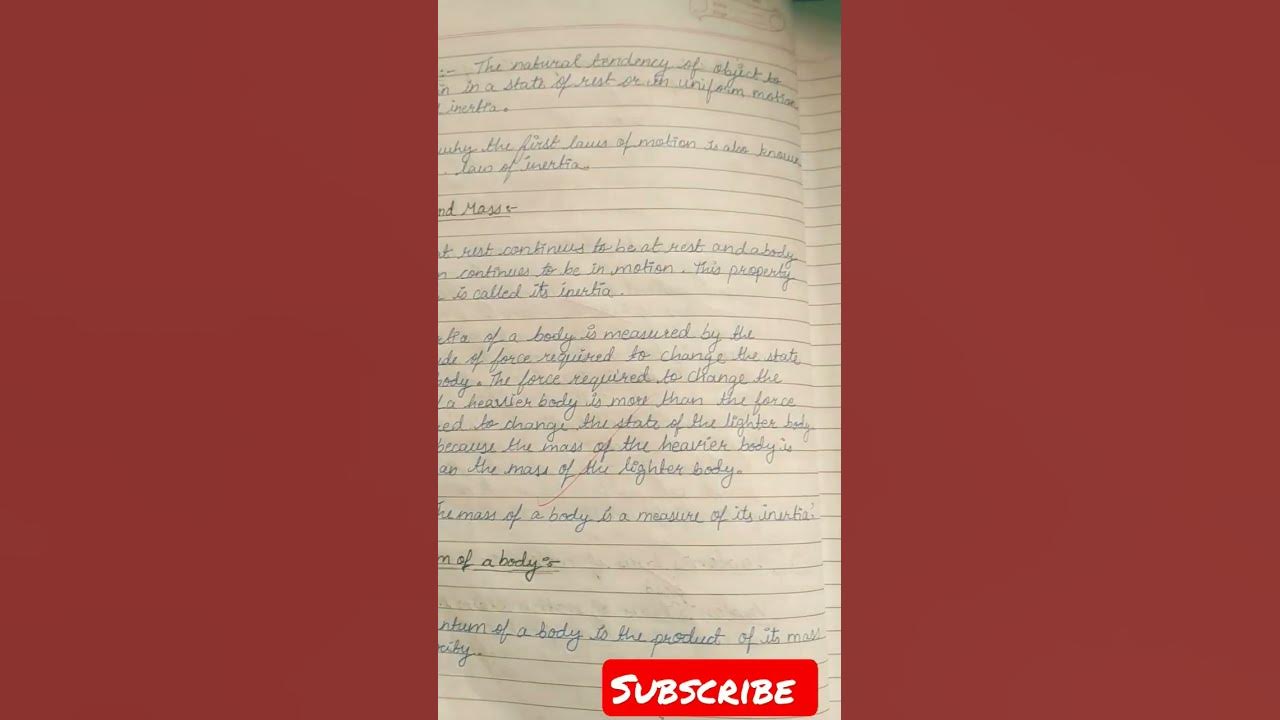 :- The natural tendency of object to
in in a state of rest or in uniform motion
inertia.
why the first laws of motion is also known
law of inertia.
nd Mass:-
at rest continues to be at rest and a body
n continues to be in motion. This property
is called its inertia.
rtia of a body is measured by the
ude of force required to change the state
body. The force required to change the
f a heavier body is more than the force
red to change the state of the lighter body
because the mass of the heavier body is
an the mass of the lighter body.
The mass of a body is a measure of its inertia.
m of a body:-
ntum of a body is the product of its mass
ocity.
SUBSCRIBE